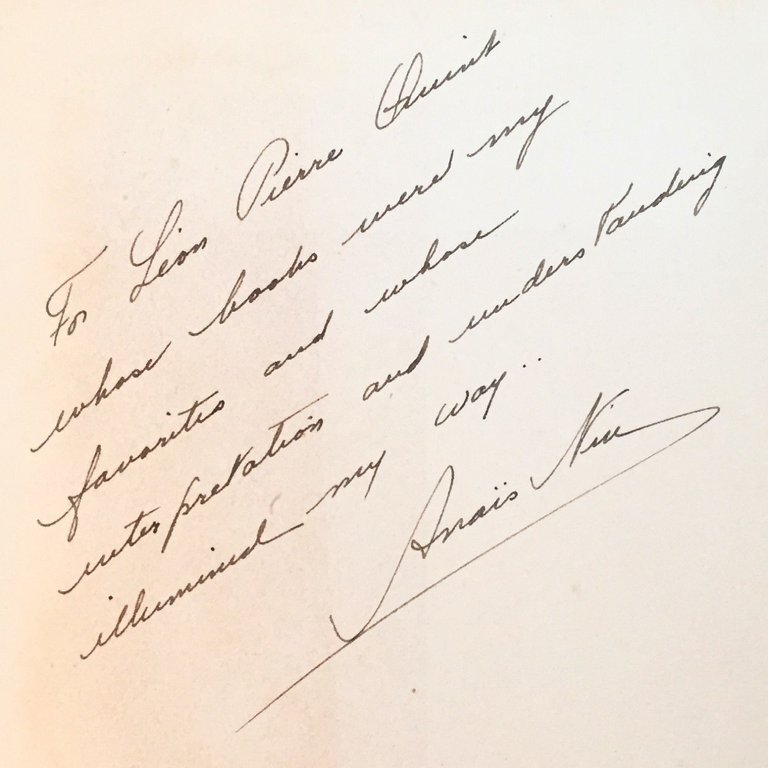 For Léon Pierre Quint
whose books were my
favorites and whose
interpretation and understanding
illumined my way..
Anaïs Nin